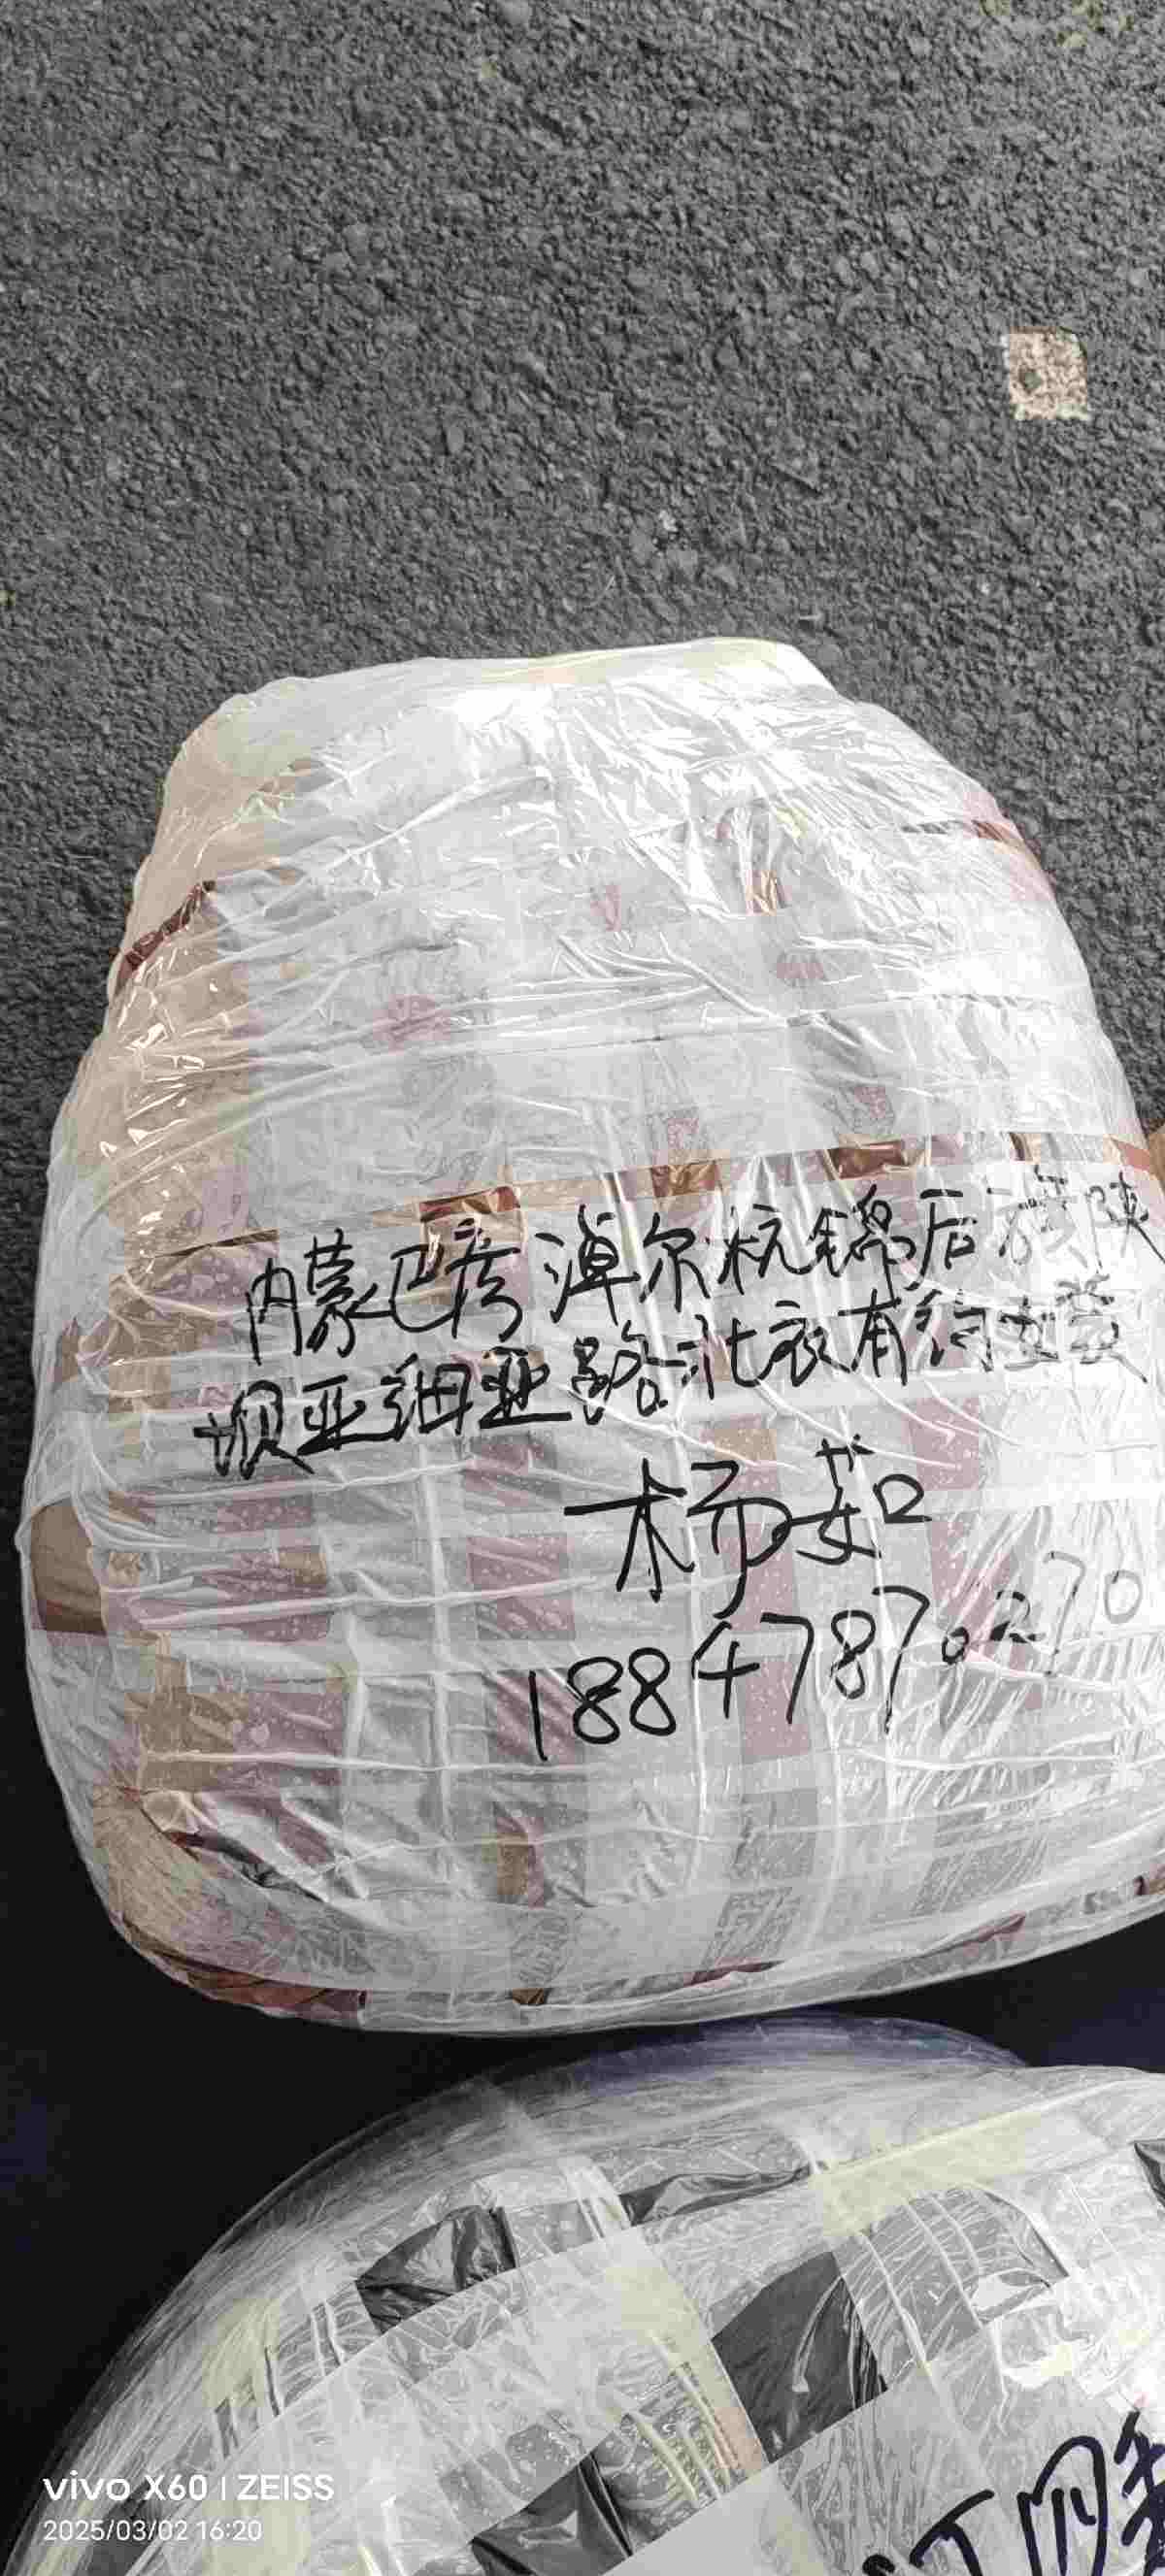 内蒙巴彦淖尔杭锦后旗陕
坝亚细亚路北衣有约女装
杨茹
18847870270
vivo X60 | ZEISS
2025/03/02 16:20